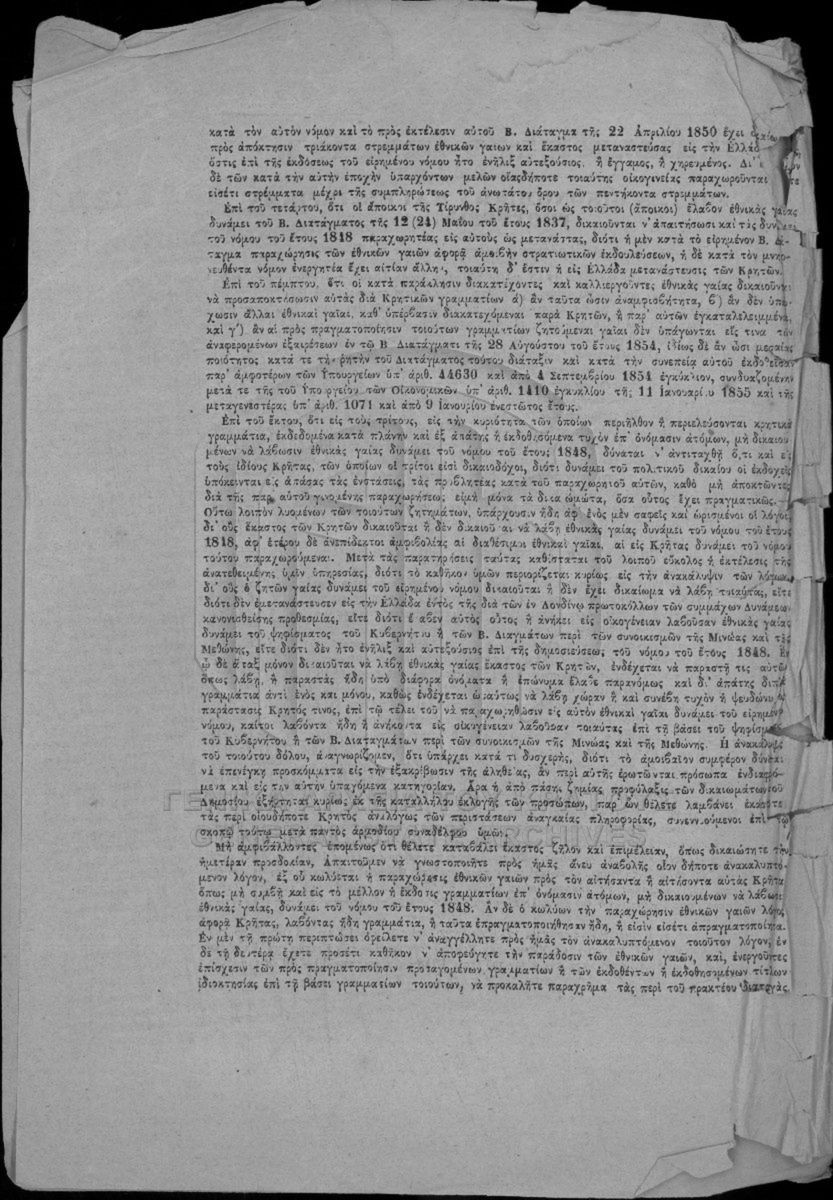 κατὰ τὸν αὐτὸν νόμον καὶ τὸ πρὸς ἐκτέλεσιν αὐτοῦ Β. Διάταγμα τῆς 22 Ἀπριλίου 1850 ἔχει
πρὸς ἀπόκτησιν τριάκοντα στρεμμάτων ἐθνικῶν γαιῶν καὶ ἕκαστος μεταναστεύσας εἰς τὴν
ὅστις ἐπὶ τῆς ἐκδόσεως τοῦ εἰρημένου νόμου ἦτο ἐνῆλιξ αὐτεξούσιος, ἢ ἔγγαμος, ἢ χηρευμένος.
δὲ τῶν κατὰ τὴν αὐτὴν ἐποχὴν ὑπαρχόντων μελῶν οἱασδήποτε τοιαύτης οἰκογενείας παραχωροῦνται
εἰσέτι στρέμματα μέχρι τῆς συμπληρώσεως τοῦ ἀνωτάτου ὅρου τῶν πεντήκοντα στρεμμάτων.
Ἐπὶ τοῦ τετάρτου, ὅτι οἱ ἄποικοι τῆς Τίρυνθος Κρῆτες, ὅσοι ὡς τοιοῦτοι (ἄποικοι) ἔλαβον ἐθνικὰς γαίας
δυνάμει τοῦ Β. Διατάγματος τῆς 12 (24) Μαΐου τοῦ ἔτους 1837, δικαιοῦνται ν' ἀπαιτήσωσι καὶ τὰς
τοῦ νόμου τοῦ ἔτους 1848 παραχωρητέας εἰς αὐτοὺς ὡς μετανάστας, διότι ἡ μὲν κατὰ τὸ εἰρημένον Β.
ταγμα παραχώρησις τῶν ἐθνικῶν γαιῶν ἀφορᾷ ἀμοιβὴν στρατιωτικῶν ἐκδουλεύσεων, ἡ δὲ κατὰ τὸν
νευθέντα νόμον ἐνεργητέα ἔχει αἰτίαν ἄλλην, τοιαύτη δ' ἐστὶν ἡ εἰς Ἑλλάδα μετανάστευσις τῶν Κρητῶν.
Ἐπὶ τοῦ πέμπτου, ὅτι οἱ κατὰ παράκλησιν διακατέχοντες καὶ καλλιεργοῦντες ἐθνικὰς γαίας δικαιοῦνται
νὰ προσαποκτήσωσιν αὐτὰς διὰ Κρητικῶν γραμματίων ά) ἂν ταῦτα ὦσιν ἀναμφισβήτητα, β) ἂν δὲν
χωσιν ἄλλαι ἐθνικαὶ γαῖαι, καθ' ὑπέρβασιν διακατεχόμεναι παρὰ Κρητῶν, ἢ παρ' αὐτῶν ἐγκαταλελειμμέναι,
καὶ γ') ἂν αἱ πρὸς πραγματοποίησιν τοιούτων γραμματίων ζητούμεναι γαῖαι δὲν ὑπάγωνται εἴς τινα τῶν
ἀναφερομένων ἐξαιρέσεων ἐν τῷ Β Διατάγματι τῆς 28 Αὐγούστου τοῦ ἔτους 1854, ἰδίως δὲ ἂν ὦσι μετρίας
ποιότητος κατά τε τὴν ῥητὴν τοῦ Διατάγματος τούτου διάταξιν καὶ κατὰ τὴν συνεπείᾳ αὐτοῦ ἐκδοθεῖσαν
παρ' ἀμφοτέρων τῶν Ὑπουργείων ὑπ' ἀριθ. 44630 καὶ ἀπὸ 4 Σεπτεμβρίου 1854 ἐγκύκλιον, συνδυαζομένην
μετά τε τῆς τοῦ Ὑπουργείου τῶν Οἰκονομικῶν ὑπ' ἀριθ. 1410 ἐγκυκλίου τῆς 11 Ἰανουαρίου 1855 καὶ τῆς
μεταγενεστέρας ὑπ' ἀριθ. 1071 καὶ ἀπὸ 9 Ἰανουρίου ἐνεστῶτος ἔτους.
Ἐπὶ τοῦ ἕκτου, ὅτι εἰς τοὺς τρίτους, εἰς τὴν κυριότητα τῶν ὁποίων περιῆλθον ἢ περιελεύσονται κρητικὰ
γραμμάτια, ἐκδεδομένα κατὰ πλάνην καὶ ἐξ ἀπάτης ἢ ἐκδοθησόμενα τυχὸν ἐπ' ὀνόμασιν ἀτόμων, μὴ δικαιου
μένων νὰ λάβωσιν ἐθνικὰς γαίας δυνάμει τοῦ νόμου τοῦ ἔτους 1848, δύναται ν' ἀντιταχθῇ ὅ,τι καὶ εἰς
τοὺς ἰδίους Κρῆτας, τῶν ὁποίων οἱ τρίτοι εἰσὶ δικαιοδόχοι, διότι δυνάμει τοῦ πολιτικοῦ δικαίου οἱ ἐκδοχεῖς
ὑπόκεινται εἰς ἁπάσας τὰς ἐνστάσεις, τὰς προβλητέας κατὰ τοῦ παραχωρητοῦ αὐτῶν, καθὸ μὴ ἀποκτῶντες
διὰ τῆς παρ' αὐτοῦ γινομένης παραχωρήσεως εἰμὴ μόνα τὰ δικαιώματα, ὅσα οὗτος ἔχει πραγματικῶς.
Οὕτω λοιπὸν λυομένων τῶν τοιούτων ζητημάτων, ὑπάρχουσιν ἤδη ἀφ' ἑνὸς μὲν σαφεῖς καὶ ὡρισμένοι οἱ λόγοι,
δι' οὓς ἕκαστος τῶν Κρητῶν δικαιοῦται ἢ δὲν δικαιοῦται νὰ λάβῃ ἐθνικὰς γαίας δυνάμει τοῦ νόμου τοῦ ἔτους
1848, ἀφ' ἑτέρου δὲ ἀνεπίδεκτοι ἀμφιβολίας αἱ διαθέσιμοι ἐθνικαὶ γαῖαι, αἱ εἰς Κρῆτας δυνάμει τοῦ νόμου
τούτου παραχωρούμεναι. Μετὰ τὰς παρατηρήσεις ταύτας καθίσταται τοῦ λοιποῦ εὔκολος ἡ ἐκτέλεσις τῆς
ἀνατεθειμένης ὑμῖν ὑπηρεσίας, διότι τὸ καθῆκον ὑμῶν περιορίζεται κυρίως εἰς τὴν ἀνακάλυψιν τῶν λόγων,
δι' οὓς ὁ ζητῶν γαίας δυνάμει τοῦ εἰρημένου νόμου δικαιοῦται ἢ δὲν ἔχει δικαίωμα νὰ λάβῃ τοιαύτας, εἴτε
διότι δὲν ἐμετανάστευσεν εἰς τὴν Ἑλλάδα ἐντὸς τῆς διὰ τῶν ἐν Λονδίνῳ πρωτοκόλλων τῶν συμμάχων Δυνάμεων
κανονισθείσης προθεσμίας, εἴτε διότι ἔλαβεν αὐτὸς οὗτος ἢ ἀνήκει εἰς οἰκογένειαν λαβοῦσαν ἐθνικὰς γαίας
δυνάμει τοῦ ψηφίσματος τοῦ Κυβερνήτου ἢ τῶν Β. Διαγμάτων περὶ τῶν συνοικισμῶν τῆς Μινώας καὶ τῆς
Μεθώνης, εἴτε διότι δὲν ἦτο ἐνῆλιξ καὶ αὐτεξούσιος ἐπὶ τῆς δημοσιεύσεως τοῦ νόμου τοῦ ἔτους 1848. Ἐν
ᾧ δὲ ἅπαξ μόνον δικαιοῦται νὰ λάβῃ ἐθνικὰς γαίας ἕκαστος τῶν Κρητῶν, ἐνδέχεται νὰ παραστῇ τις αὐτῶν
ὅπως λάβῃ, ἢ παραστὰς ἤδη ὑπὸ διάφορα ὀνόματα ἢ ἐπώνυμα ἔλαβε παρανόμως καὶ δι' ἀπάτης διπλᾶ
γραμμάτια ἀντὶ ἑνὸς καὶ μόνου, καθὼς ἐνδέχεται ὡσαύτως νὰ λάβῃ χώραν ἢ καὶ συνέβη τυχὸν ἡ ψευδώνυμος
παράστασις Κρητός τινος, ἐπὶ τῷ τέλει τοῦ νὰ παραχωρηθῶσιν εἰς αὐτὸν ἐθνικαὶ γαῖαι δυνάμει τοῦ εἰρημένου
νόμου, καίτοι λαβόντα ἤδη ἢ ἀνήκοντα εἰς οἰκογένειαν λαβοῦσαν τοιαύτας ἐπὶ τῇ βάσει τοῦ ψηφίσματος
τοῦ Κυβερνήτου ἢ τῶν Β. Διαταγμάτων περὶ τῶν συνοικισμῶν τῆς Μινώας καὶ τῆς Μεθώνης. Ἡ ἀνακάλυψις
τοῦ τοιούτου δόλου, ἀναγνωρίζομεν, ὅτι ὑπάρχει κατά τι δυσχερής, διότι τὸ ἀμοιβαῖον συμφέρον δύναται
νὰ ἐπενέγκῃ προσκόμματα εἰς τὴν ἐξακρίβωσιν τῆς ἀληθείας, ἂν περὶ αὐτῆς ἐρωτῶνται πρόσωπα ἐνδιαφερό
μενα καὶ εἰς τὴν αὐτὴν ὑπαγόμενα κατηγορίαν. Ἄρα ἡ ἀπὸ πάσης ζημίας προφύλαξις τῶν δικαιωμάτων τοῦ
Δημοσίου ἐξήρτηται κυρίως ἐκ τῆς καταλλήλου ἐκλογῆς τῶν προσώπων, παρ' ὧν θέλετε λαμβάνει ἑκάστοτε
τὰς περὶ οἱουδήποτε Κρητὸς ἀναλόγως τῶν περιστάσεων ἀναγκαίας πληροφορίας, συνεννοούμενοι ἐπὶ τῷ
σκοπῷ τούτῳ μετὰ παντὸς ἁρμοδίου συναδέλφου ὑμῶν.
Μὴ ἀμφιβάλλοντες ἑπομένως ὅτι θέλετε καταβάλει ἕκαστος ζῆλον καὶ ἐπιμέλειαν, ὅπως δικαιώσητε τὴν
ἡμετέραν προσδοκίαν, Ἀπαιτοῦμεν νὰ γνωστοποιῆτε πρὸς ἡμᾶς ἄνευ ἀναβολῆς οἷον δήποτε ἀνακαλυπτό-
μενον λόγον, ἐξ οὗ κωλύεται ἡ παραχώρησις ἐθνικῶν γαιῶν πρὸς τὸν αἰτήσαντα ἢ αἰτήσοντα αὐτὰς Κρῆτα
ὅπως μὴ συμβῇ καὶ εἰς τὸ μέλλον ἡ ἔκδοσις γραμματίων ἐπ' ὀνόμασιν ἀτόμων, μὴ δικαιουμένων νὰ λάβωσιν
ἐθνικὰς γαίας, δυνάμει τοῦ νόμου τοῦ ἔτους 1848. Ἂν δὲ ὁ κωλύων τὴν παραχώρησιν ἐθνικῶν γαιῶν λόγος
ἀφορᾷ Κρῆτας, λαβόντας ἤδη γραμμάτια, ἢ ταῦτα ἐπραγματοποιήθησαν ἤδη, ἢ εἰσὶν εἰσέτι ἀπραγματοποίητα.
Ἐν μὲν τῇ πρώτῃ περιπτώσει ὀφείλετε ν' ἀναγγέλλητε πρὸς ἡμᾶς τὸν ἀνακαλυπτόμενον τοιοῦτον λόγον, ἐν
δὲ τῇ δευτέρᾳ ἔχετε προσέτι καθῆκον ν' ἀποφεύγητε τὴν παράδοσιν τῶν ἐθνικῶν γαιῶν, καὶ, ἐνεργοῦντες
ἐπίσχεσιν τῶν πρὸς πραγματοποίησιν προσαγομένων γραμματίων ἢ τῶν ἐκδοθέντων ἢ ἐκδοθησομένων τίτλων
ἰδιοκτησίας ἐπὶ τῇ βάσει γραμματίων τοιούτων, νὰ προκαλῆτε παραχρῆμα τὰς περὶ τοῦ πρακτέου διαταγάς.